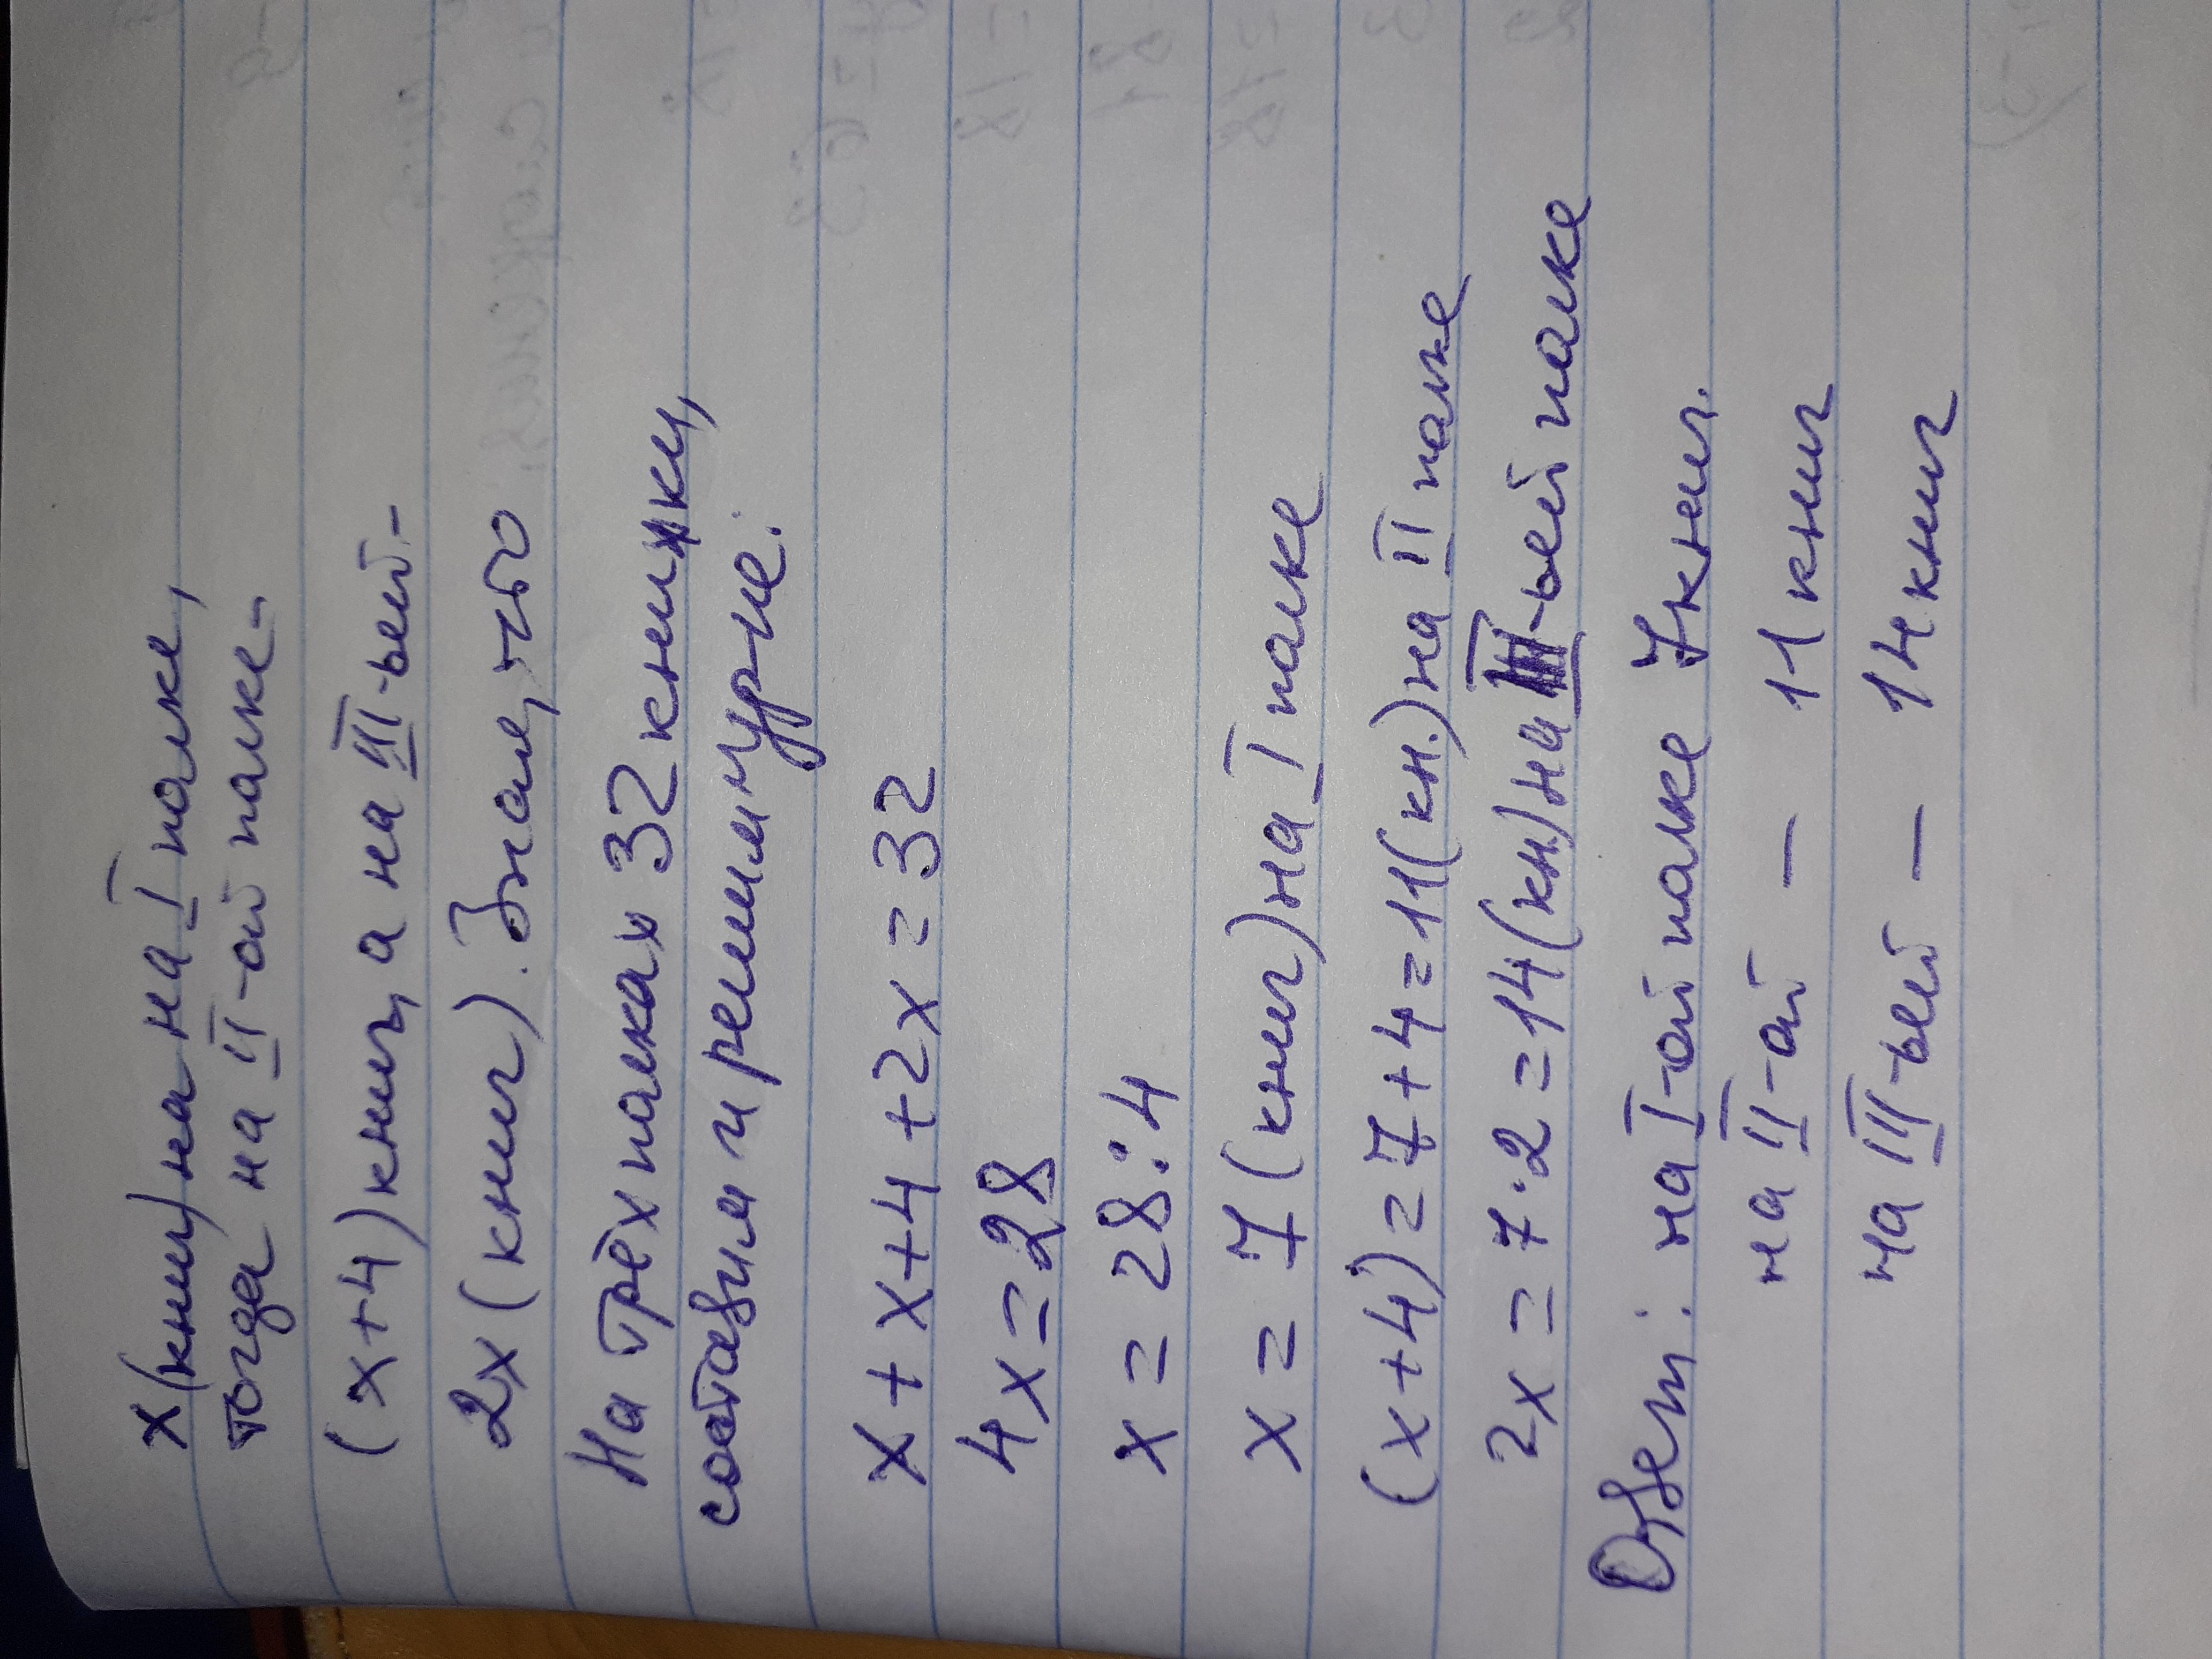 x (книг) на на I полке,
тогда на II-ой полке -
(x+4) книг, а на III-ьей -
2x (книг). Зная, что
На трёх полках 32 книжки,
составим и решим ур-ие:
x + x+4 + 2x = 32
4x = 28
x = 28 : 4
x = 7 (книг) на I полке
(x+4) = 7+4 = 11 (кн.) на II полке
2x = 7·2 = 14 (кн) на III-ьей полке
Ответ: на I-ой полке 7 книг.
на II-ой — 11 книг
на III-ьей — 14 книг